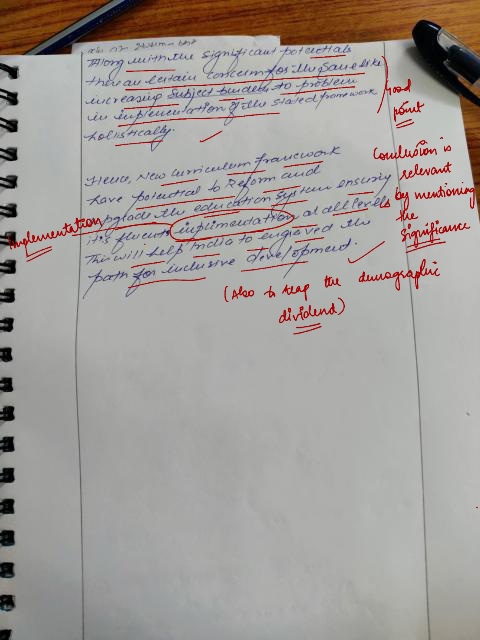 Along with the significant potentials
there are certain concerns for the same like
increasing subject burden, to problem
in implementation of the stated framework
holistically.
Good
point
Hence, New curriculum framework
have potential to Reform and
upgrade the education system ensuring
it's fluent implimentation at all levels
This will help India to engraved the
path for inclusive development.
Implementation
Conclusion is
relevant
by mentioning
the
significance
(Also to reap the demographic
dividend)